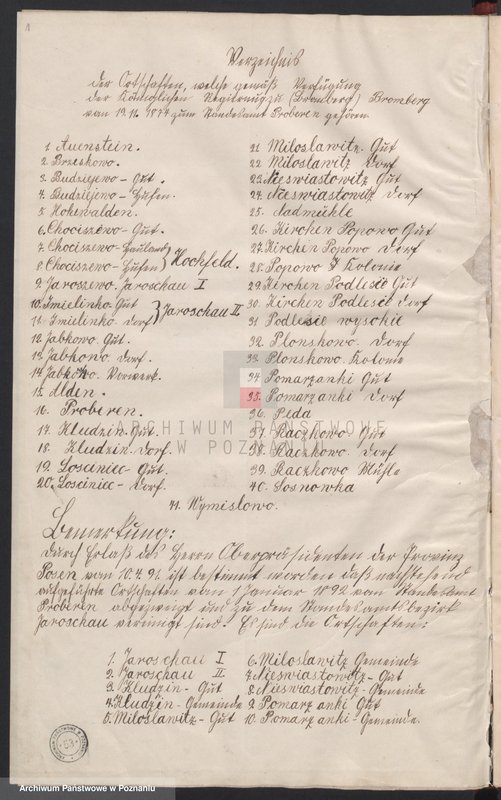 1
Verzeichnis
der Ortschaften, welche gemäß Verfügung
der Königlichen Regierung zu (Bromberg) Bromberg
vom 19.11. 1874 zum Standesamt Proberen gehören.
1. Auenstein.
2. Brzeskowo.
3. Budziejewo - Gut.
4. Budziejewo - Hufen.
5. Hohewalden.
6. Chociszewo - Gut.
7. Chociszewo - Hauland
8. Chociszewo - Hufen } Hochfeld.
9. Jaroszewo. Jaroschau I
10. Imielinko. Gut
11. Imielinko - Dorf } Jaroschau II
12. Jabkowo. Gut.
13. Jabkowo. Dorf.
14. Jabkowo. Vorwerk.
15. Alden.
16. Proberen.
17. Kludzin. Gut.
18. Kludzin. Dorf.
19. Losciniec - Gut.
20. Losciniec - Dorf.
21. Miloslawitz. Gut
22. Miloslawitz Dorf
23. Nieswiastowitz Gut
24. Nieswiastowitz Dorf
25. Nadmühle
26. Kirchen Popowo Gut
27. Kirchen Popowo Dorf
28. Popowo J Kolonie
29. Kirchen Podlesie Gut
30. Kirchen Podlesie Dorf
31. Podlesie wyschie
32. Plonskowo. Dorf
33. Plonskowo. Kolonie
34. Pomarzanki Gut
35. Pomarzanki Dorf
36. Peda
37. Raczkowo Gut
38. Raczkowo Dorf
39. Raczkowo Mühle
40. Sosnowka
41. Wymislowo.
Bemerkung:
Durch Erlaß des Herrn Oberpräsidenten der Provinz
Posen vom 10.4.91. ist bestimmt worden daß nachstehend
aufgeführte Ortschaften vom 1 Januar 1892 vom Standesamt
Proberen abgezweigt und zu dem Standesamtsbezirk
Jaroschau vereinigt sind. Es sind die Ortschaften:
1. Jaroschau I
2. Jaroschau II
3. Kludzin - Gut
4. Kludzin - Gemeinde
5. Miloslawitz - Gut
6. Miloslawitz Gemeinde
7. Nieswiastowitz - Gut
8. Nieswiastowitz - Gemeinde
9. Pomarzanki Gut
10. Pomarzanki - Gemeinde.
ARCHIWUM PAŃSTWOWE
W POZNANIU
Archiwum Państwowe w Poznaniu